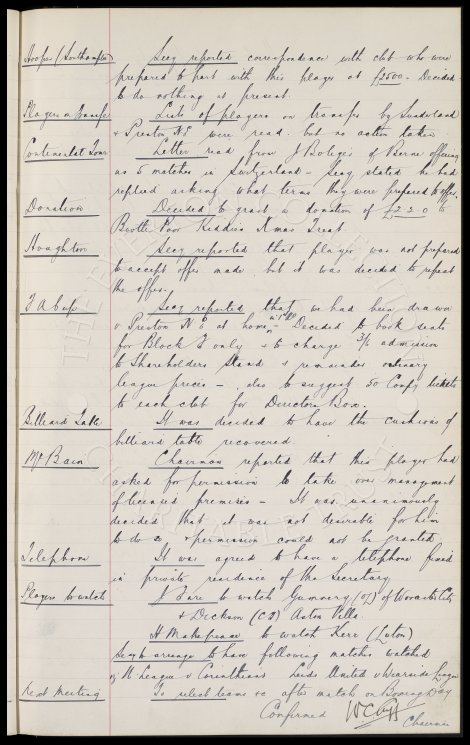 Hooper (Southampton) Secy reported correspondence with club who were
prepared to part with this player at £2500. Decided
to do nothing at present.
Players on transfer Lists of players on transfer by Sunderland
& Preston N E were read but no action taken
Continental Tour Letter read from J Boligei of Berne offering
us 5 matches in Switzerland - Secy stated he had
replied asking what terms they were prepared to offer.
Donation Decided to grant a donation of £2.2.0 to
Bootle Poor Kiddies Xmas Treat.
Houghton Secy reported that player was not prepared
to accept offer made but it was decided to repeat
the offer.
F A Cup Secy reported that we had been drawn
v Preston N E at home - Decided to book seats
for Block J only & to charge 3/- admission
to Shareholders Stand & remainder ordinary
league prices - also to suggest 50 Comp tickets
to each club for Directors Box.
Billiard Table It was decided to have the cushions of
billiard table recovered.
McBain Chairman reported that this player had
asked for permission to take over management
of licensed premises - It was unanimously
decided that it was not desirable for him
to do so & permission could not be granted.
Telephone It was agreed to have a telephone fixed
in private residence of the Secretary.
Players to watch J Fare to watch Gummery (OL) of Worcester City
& Dickson (CH) Aston Villa.
H Makepeace to watch Kerr (Luton)
Secy to arrange to have following matches watched
N League v Corinthians Leeds United v Wearside League
Next Meeting To select teams &c after match on Boxing Day
Confirmed
Chairman